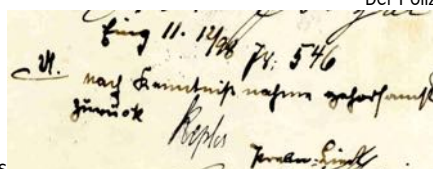 Der Poliz
Eing 11. 12/98 Nr: 546
U. nach Kenntnißnahme gehorsamst
zurück
s